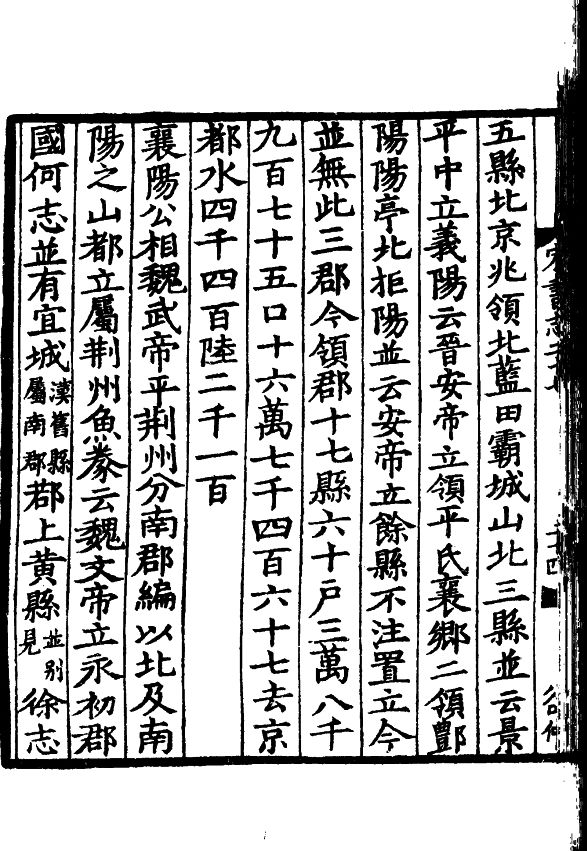 五縣北京兆領北藍田霸城山北三縣並云景
平中立義陽云晉安帝立領平氏襄鄉二領酆
陽陽亭北拒陽並云安帝立餘縣不注置立今
並無此三郡今領郡十七縣六十戶三萬八千
九百七十五口十六萬七千四百六十七去京
都水四千四百陸二千一百
襄陽公相魏武帝平荆州分南郡編以北及南
陽之山都立屬荆州魚豢云魏文帝立永初郡
國何志並有宜城漢舊縣屬南郡鄀上黃縣並別見徐志